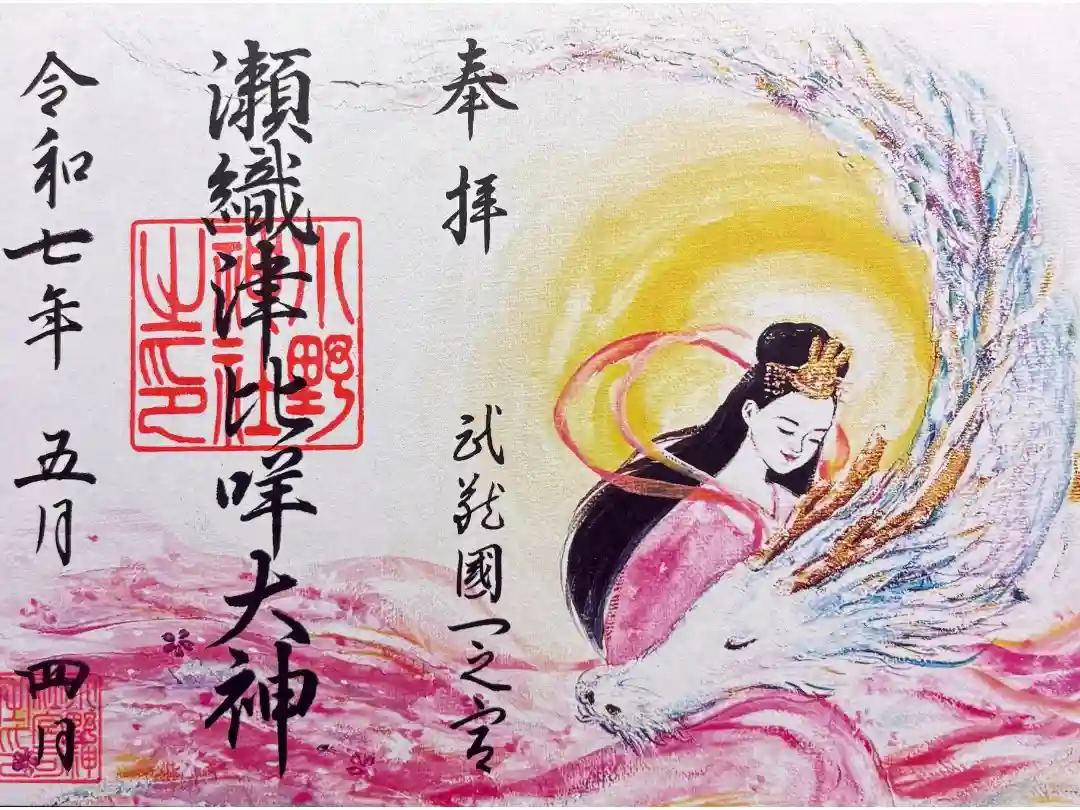 奉拝
武蔵國一之宮
瀬織津比咩大神
小野神社之印
令和七年五月四日